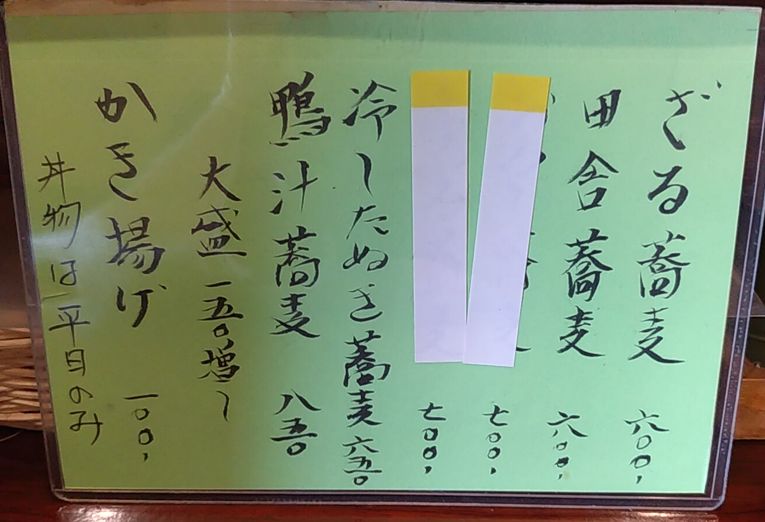 ざる蕎麦 六〇〇、
田舎蕎麦 六〇〇、
七〇〇、
七〇〇、
冷したぬき蕎麦 六五〇
鴨汁蕎麦 八五〇
大盛 一五〇増し
かき揚げ 一〇〇、
丼物は平日のみ